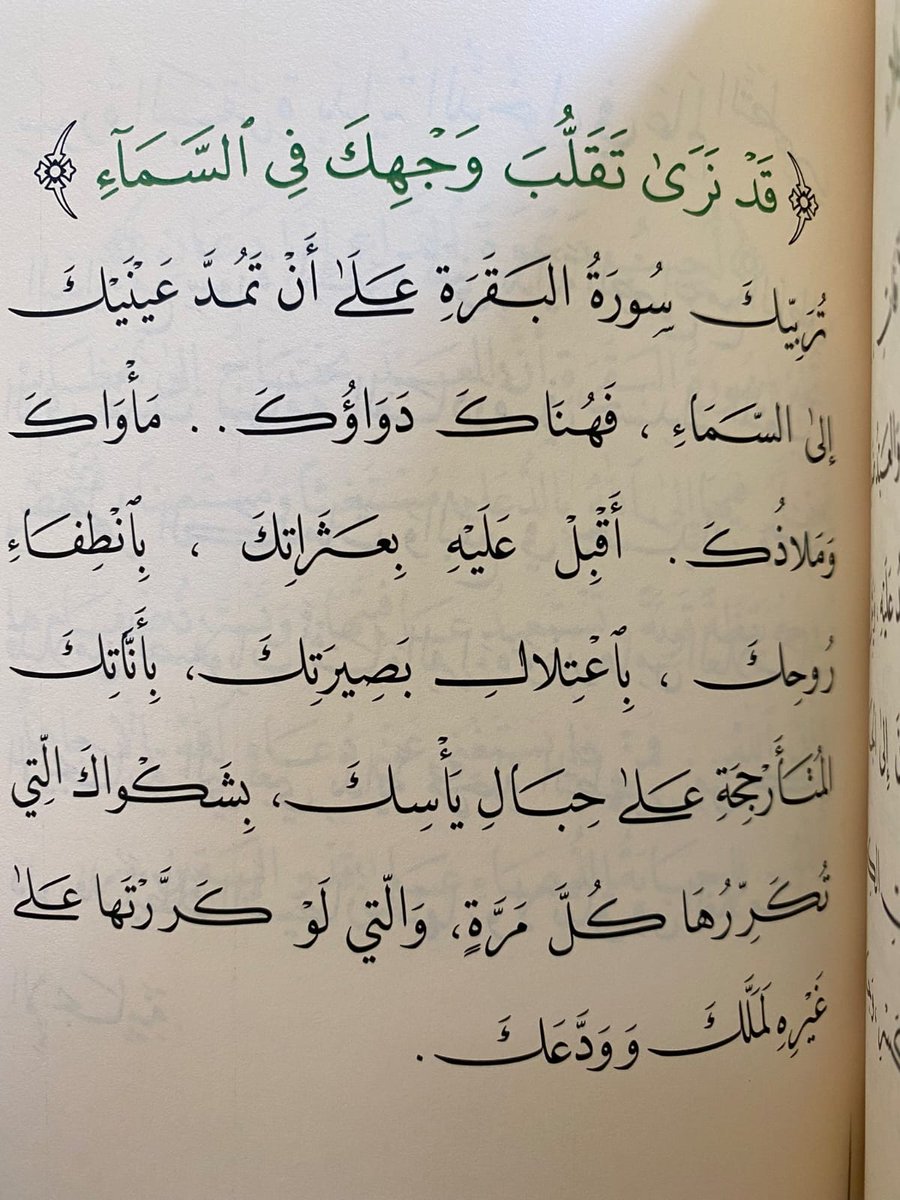 ﴿قَدْ نَرَىٰ تَقَلُّبَ وَجْهِكَ فِي ٱلسَّمَآءِ﴾
تُرَبِّيكَ سُورَةُ البَقَرَةِ عَلَىٰ أَنْ تَمُدَّ عَيْنَيْكَ
إِلىٰ السَّمَاءِ ، فَهُنَاكَ دَوَاؤُكَ.. مَأْوَاكَ
وَمَلاذُكَ. أَقْبِلْ عَلَيْهِ بِعَثَرَاتِكَ ، بِٱنْطِفَاءِ
رُوحِكَ ، بِٱعْتِلالِ بَصِيرَتِكَ، بِأَنَّاتِكَ
المُتَأَرْجِحَةِ عَلىٰ حِبَالِ يَأْسِكَ، بِشَكْوَاكَ الَّتِي
تُكَرِّرُهَا كُلَّ مَرَّةٍ، وَالَّتِي لَوْ كَرَّرْتَها عَلىٰ
غَيْرِهِ لَمَلَّكَ وَوَدَّعَكَ.